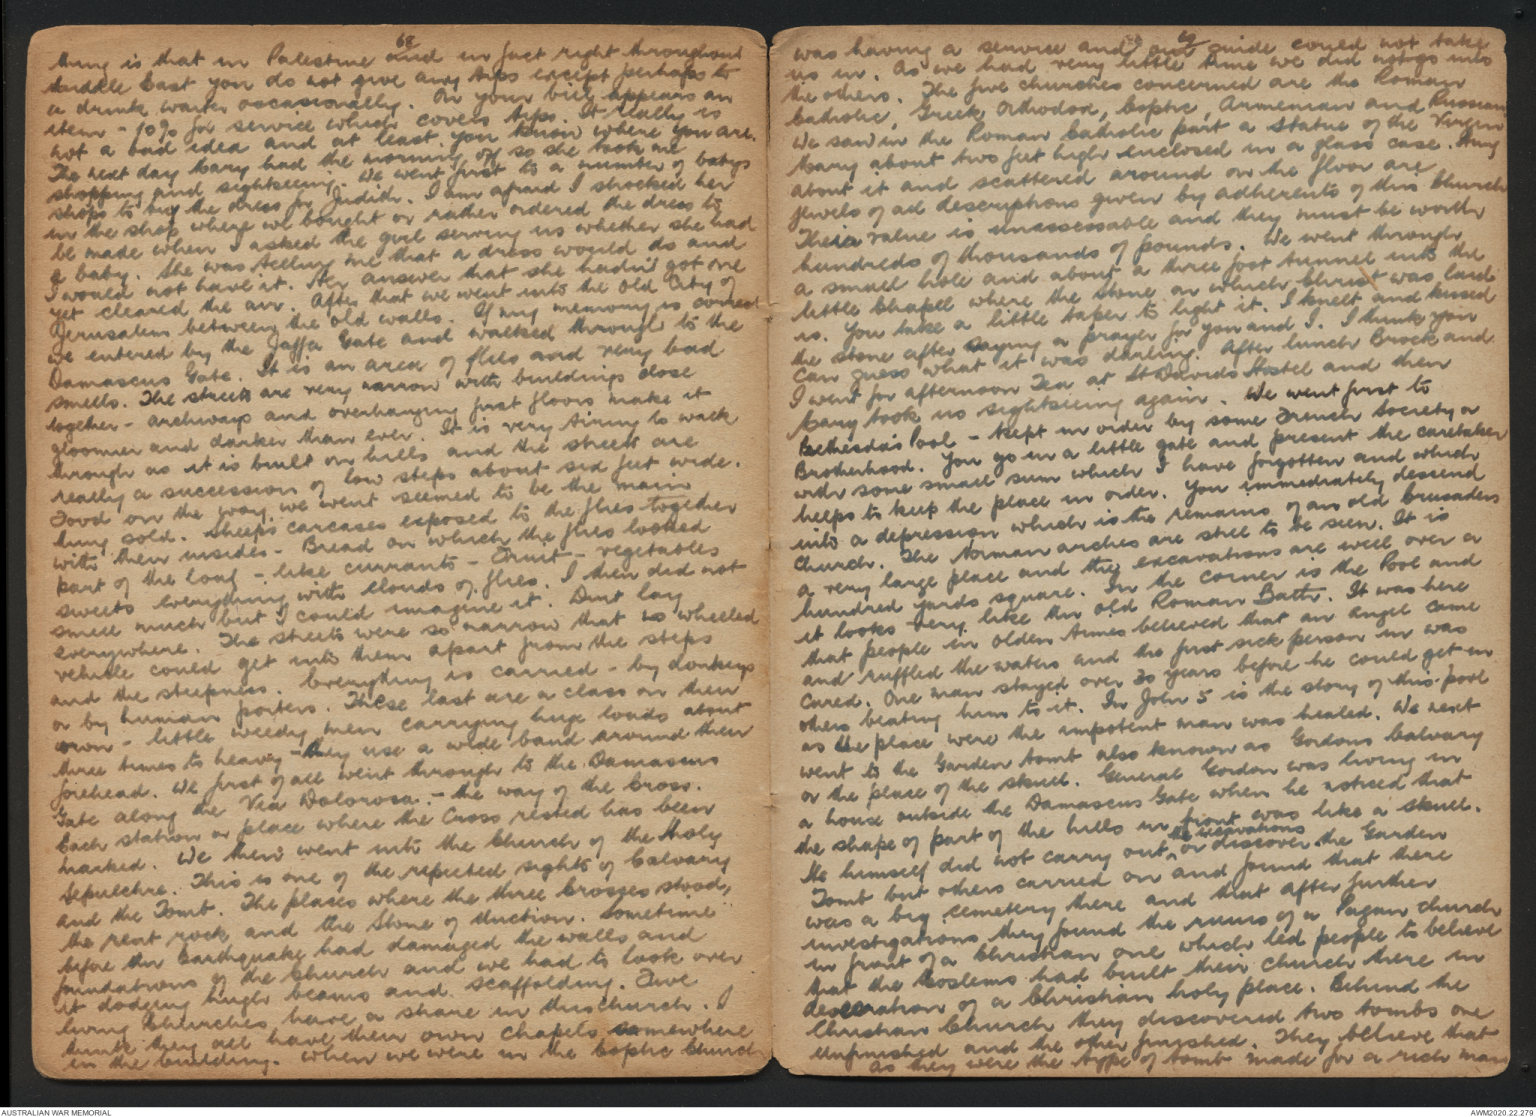 68
thing is that in Palestine and in fact right throughout
Middle East you do not give any tips except perhaps to
a drink waiter occasionally. On your bill appears an
item - 10% for service which covers tips. It really is
not a bad idea and at least you know where you are.
The next day Mary had the morning off so she took me
shopping and sightseeing. We went first to a number of babys
shops to buy the dress for Judith. I am afraid I shocked her
in the shop where we bought or rather ordered the dress to
be made when I asked the girl serving us whether she had
a baby. She was telling me that a dress would do and
I would not have it. Her answer that she hadn't got one
yet cleared the air. After that we went into the Old City of
Jerusalem between the old walls. If my memory is correct
we entered by the Jaffa Gate and walked through to the
Damascus Gate. It is an area of flies and very bad
smells. The streets are very narrow with buildings close
together - archways and overhanging first floors make it
gloomier and darker than ever. It is very tiring to walk
through as it is built on hills and the streets are
really a succession of low steps about six feet wide.
Food on the way we went seemed to be the main
thing sold. Sheeps carcases exposed to the flies together
with their insides - Bread on which the flies looked
part of the loaf - like currants - Fruit - vegetables
sweets everything with clouds of flies. I then did not
smell much but I could imagine it. Dirt lay
everywhere. The streets were so narrow that no wheeled
vehicle could get into them apart from the steps
and the steepness. Everything is carried - by donkeys
or by human porters. These last are a class on their
own - little weedy men carrying huge loads about
three times to heavy - they use a wide band around their
forehead. We first of all went through to the Damascus
Gate along the Via Dolorosa. - the way of the Cross.
Each station or place where the Cross rested has been
marked. We then went into the Church of the Holy
Sepulchre. This is one of the reputed sights of Calvary
and the Tomb. The places where the three Crosses stood,
the rent rock and the Stone of Unction. Sometime
before the Earthquake had damaged the walls and
foundations of the Church and we had to look over
it dodging hugh beams and scaffolding. Five
living Churches have a share in this church. I
think they all have their own chapels somewhere
in the building. When we were in the Coptic Church
69
was having a service and our guide could not take
us in. As we had very little time we did not go into
the others. The five churches concerned are the Roman
Catholic, Greek Orthodox, Coptic, Armenian and Russian
We saw in the Roman Catholic part a Statue of the Virgin
Mary about two feet high enclosed in a glass case. Hung
about it and scattered around on the floor are
jewels of all descriptions given by adherents of this Church
Their value is unassessable and they must be worth
hundreds of thousands of pounds. We went through
a small hole and about a three foot tunnel into the
little Chapel where the stone on which Christ was laid
is. You take a little taper to light it. I knelt and kissed
the stone after saying a prayer for you and I. I think you
can guess what it was darling. After lunch Brock and
I went for afternoon Tea at St Davids Hostel and then
Mary took us sightseeing again. We went first to
Bethesda's Pool - kept in order by some French Society or
Brotherhood. You go in a little gate and present the caretaker
with some small sum which I have forgotten and which
helps to keep the place in order. You immediately descend
into a depression which is the remains of an old Crusaders
Church. The Norman arches are still to be seen. It is
a very large place and the excavations are well over a
hundred yards square. In the corner is the Pool and
it looks very like the old Roman Bath. It was here
that people in olden times believed that an angel came
and ruffled the waters and the first sick person in was
cured. One man stayed over 30 years before he could get in
others beating him to it. In John 5 is the story of this pool
as the place were the impotent man was healed. We next
went to the Garden tomb also known as Gordons Calvary
or the place of the skull. General Gordon was living in
a house outside the Damascus Gate when he noticed that
the shape of part of the hills in front was like a skull.
He himself did not carry out the excavations or discover the Garden
Tomb but others carried on and found that there
was a big cemetery there and that after further
investigations they found the ruins of a Pagan church
in front of a Christian one which led people to believe
that the Moslems had built their church there in
desecration of a Christian holy place. Behind the
Christian Church they discovered two tombs one
unfinished and the other finished. They believe that
as they were the type of tomb made for a rich man
AUSTRALIAN WAR MEMORIAL
AWM2020.22.279